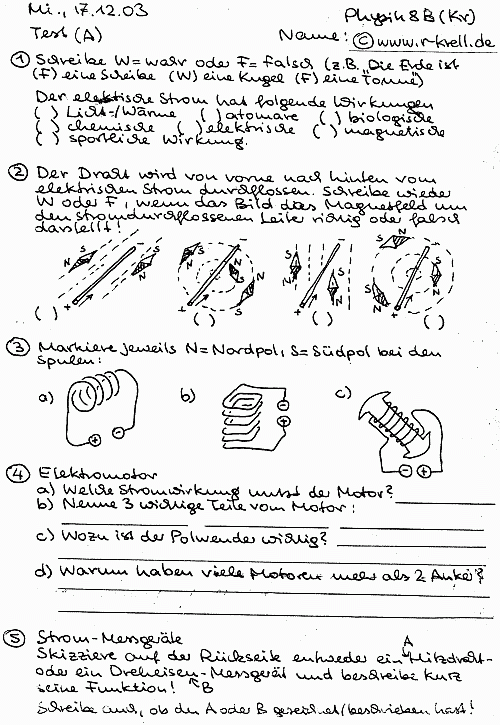 Mi., 17.12.03
Physik 8B (Kr)
Test (A)
Name: © www.r-krell.de
① Schreibe W=wahr oder F=falsch (z.B. „Die Erde ist
(F) eine Scheibe (W) eine Kugel (F) eine Tonne")
Der elektrische Strom hat folgende Wirkungen
( ) Licht-/Wärme ( ) atomare ( ) biologische
( ) chemische ( ) elektrische ( ) magnetische
( ) sportliche Wirkung.
② Der Draht wird von vorne nach hinten vom
elektrischen Strom durchflossen. Schreibe wieder
W oder F, wenn das Bild das Magnetfeld um
den stromdurchflossenen Leiter richtig oder falsch
darstellt!
S N S N + - ( )
S N S N S N + - ( )
S N S N + - ( )
S N S N S N + - ( )
③ Markiere jeweils N=Nordpol, S=Südpol bei den
Spulen:
a) + -
b) - +
c) - +
④ Elektromotor
a) Welche Stromwirkung nutzt der Motor?
b) Nenne 3 wichtige Teile vom Motor:
c) Wozu ist der Polwender wichtig?
d) Warum haben viele Motoren mehr als 2 Anker?
⑤ Strom-Messgeräte
Skizziere auf der Rückseite entweder ein A Hitzdraht-
oder ein Dreheisen-Messgerät und beschreibe kurz
seine Funktion! B
Schreibe auch, ob du A oder B gezeichnet/beschrieben hast!